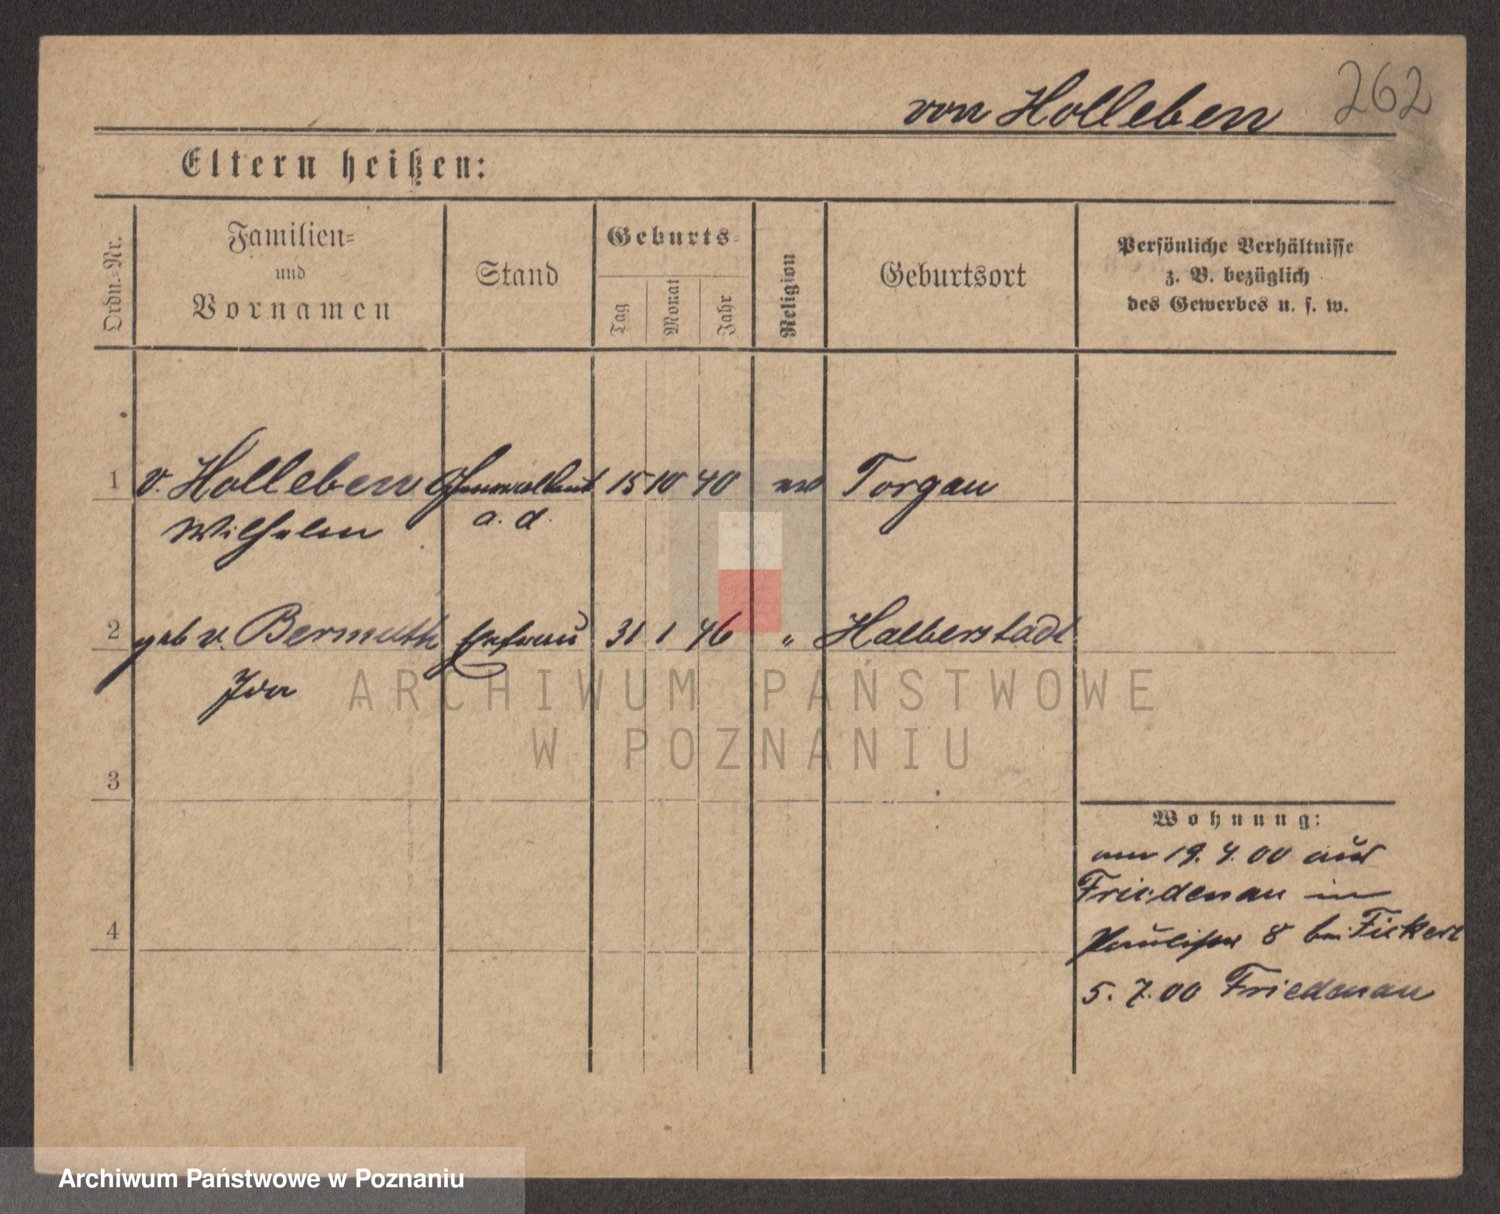 von Holleben 262
Eltern heißen:
Ordn.-Nr.
Familien-
und
Vornamen
Stand
Geburts-
Tag
Monat
Jahr
Religion
Geburtsort
Persönliche Verhältnisse
z. B. bezüglich
des Gewerbes u. s. w.
1 v. Holleben 15 10 40 ev Torgau
Wilhelm a. d.
2 geb v. Bermuth Ehefrau 31 1 46 " Halberstadt
Ida
ARCHIWUM PAŃSTWOWE
W POZNANIU
3
Wohnung:
am 19. 4. 00 aus
Friedenau in
4
8 bei Fickert
5. 7. 00 Friedenau
Archiwum Państwowe w Poznaniu